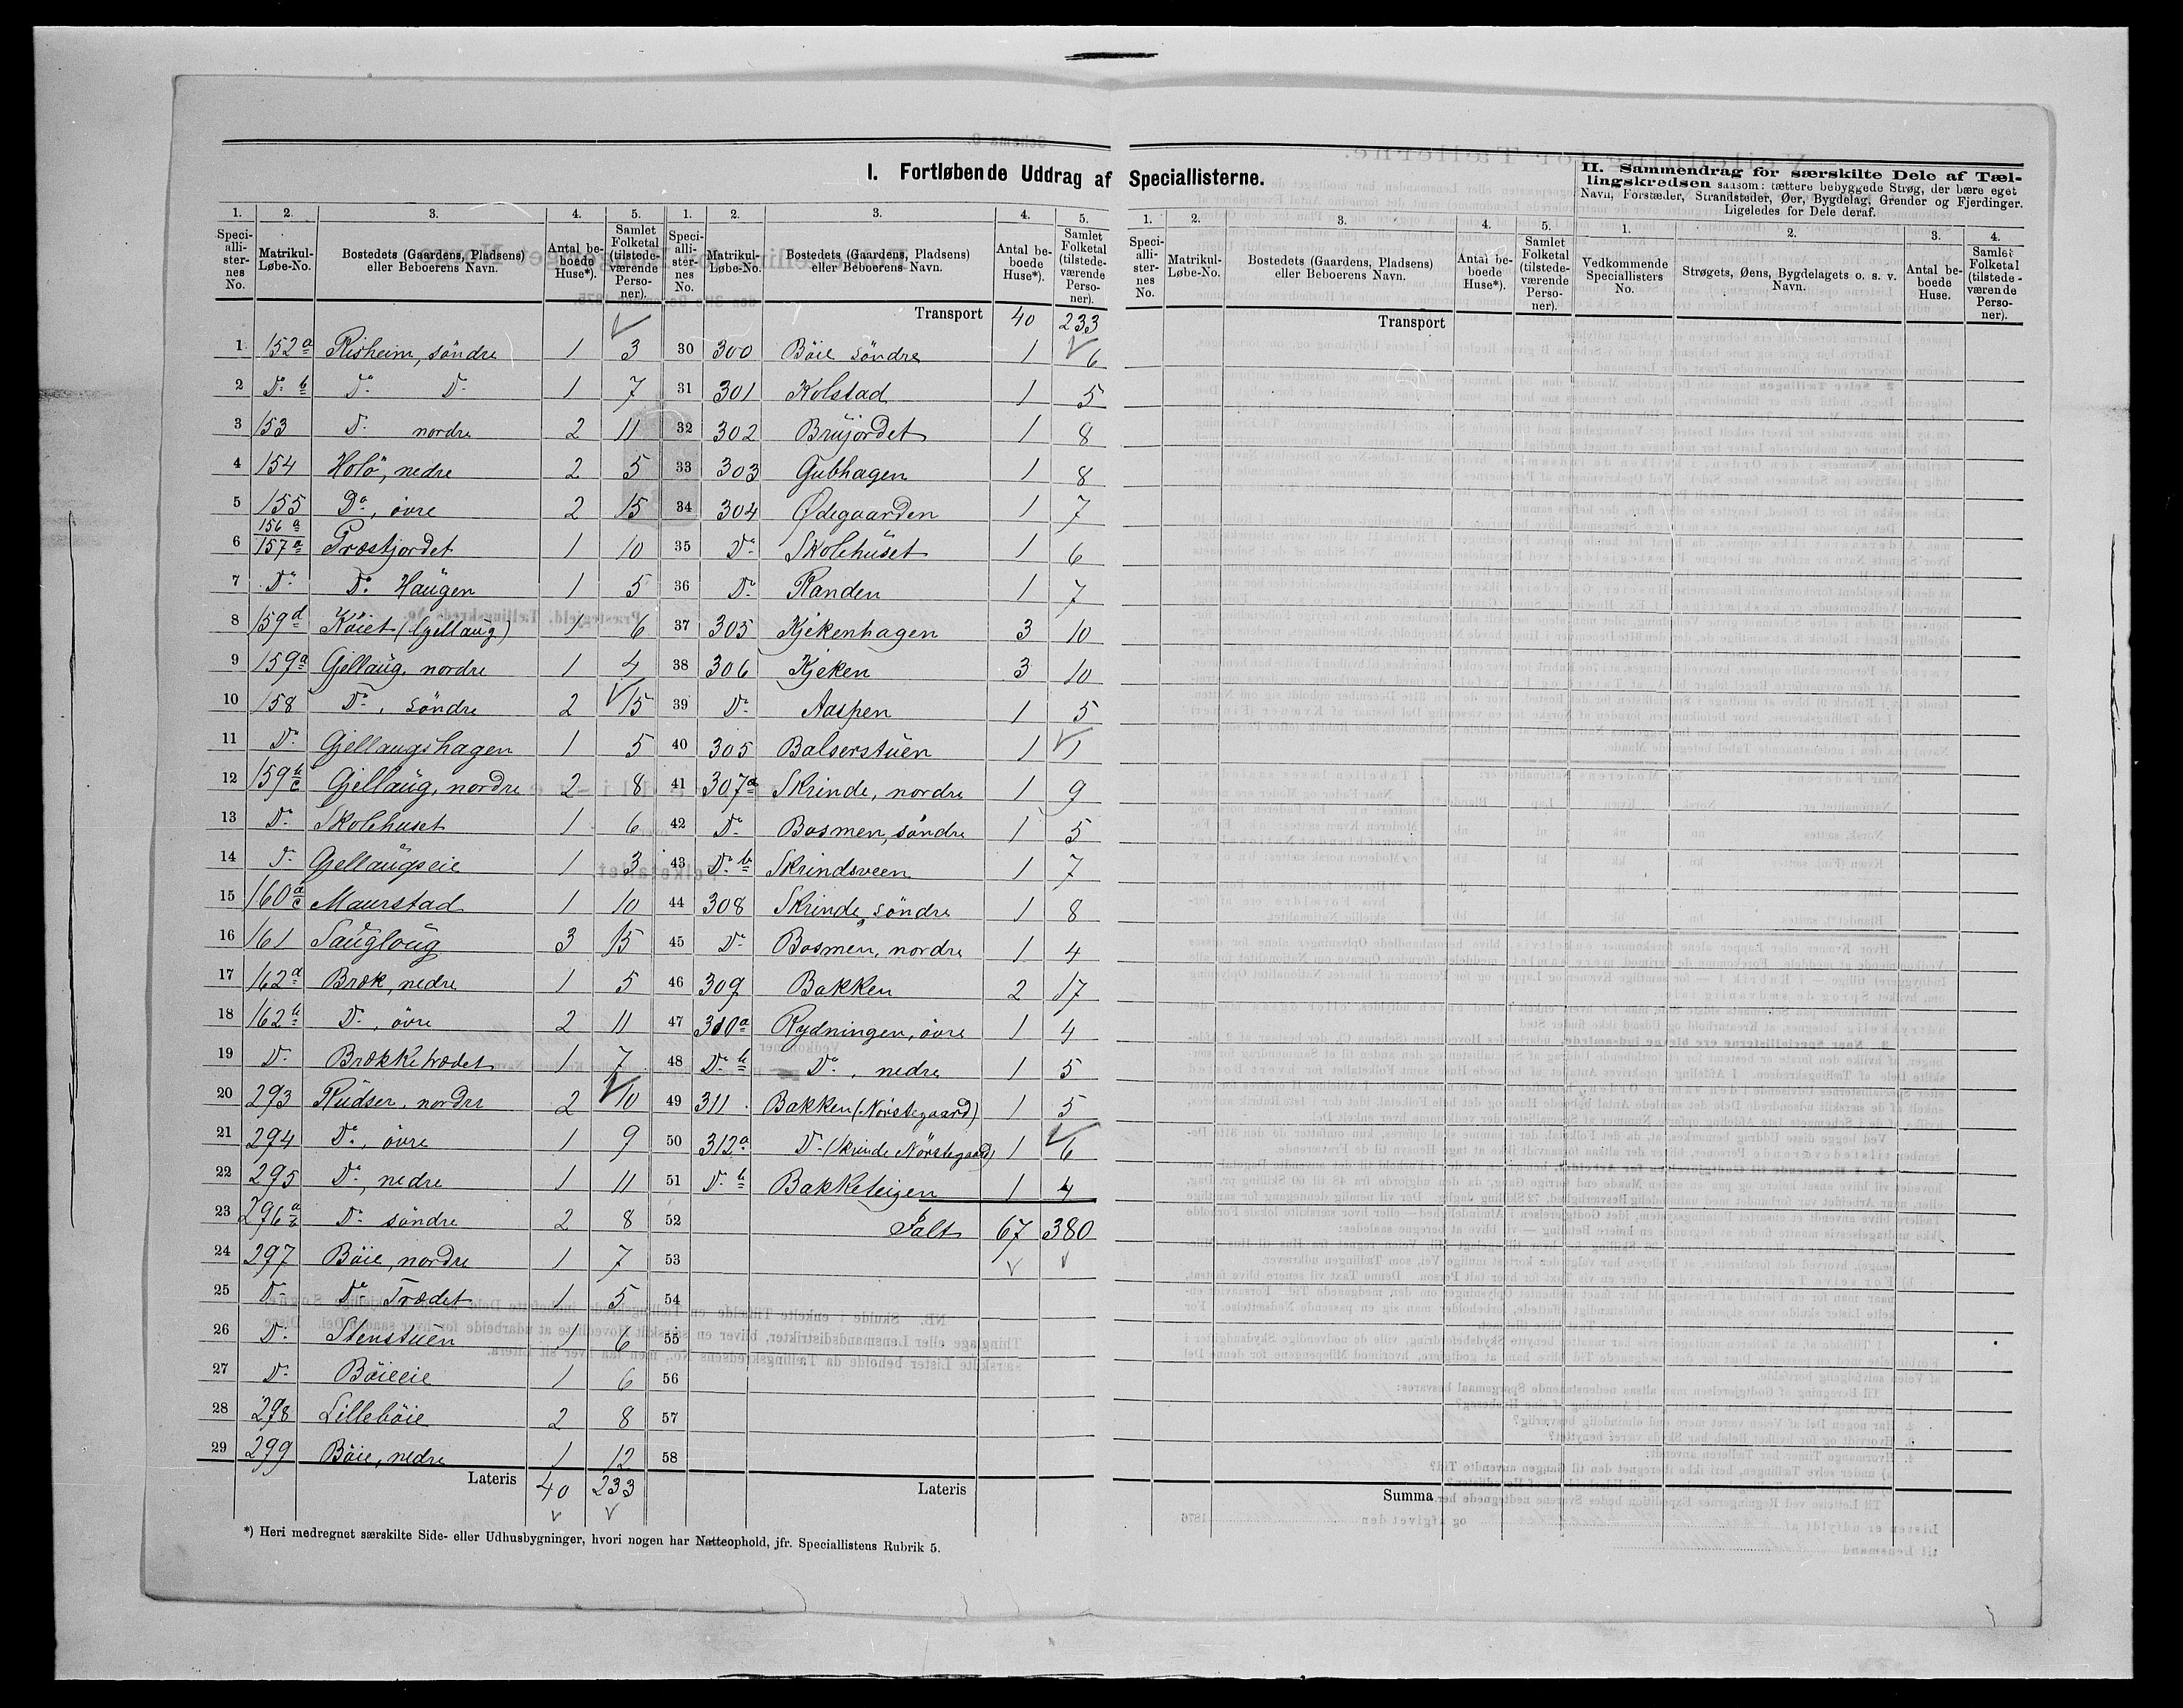 I. Fortløbende Uddrag af Speciallisterne.
1. Speciallisternes No. | 2. Matrikul-Løbe-No. | 3. Bostedets (Gaardens, Pladsens) eller Beboerens Navn. | 4. Antal beboede Huse*). | 5. Samlet Folketal (tilstedeværende Personer).
1 152a Risheim, söndre 1 3
2 Do b Do Do 1 7
3 153 Do nordre 2 11
4 154 Holö, nedre 2 5
5 155 Do, övre 2 15
6 156a 157a Præstjordet 1 10
7 Do Do Haugen 1 5
8 159d Köiet (Gjellaug) 1 6
9 159a Gjellaug, nordre 1 4
10 158 Do, söndre 2 15
11 Do Gjellaugshagen 1 5
12 159b c Gjellaug, nordre 2 8
13 Do Skolehuset 1 6
14 Do Gjellaugseie 1 3
15 160a c Maurstad 1 10
16 161 Saugloug 3 15
17 162a Bræk, nedre 1 5
18 162b Do, övre 2 11
19 Do Brækketrædet 1 7
20 293 Rudser, nordre 2 10
21 294 Do, övre 1 9
22 295 Do, nedre 1 11
23 296a Do söndre 2 8
24 297 Böie, nordre 1 7
25 Do Do Trædet 1 5
26 Do Stenstuen 1 6
27 Do Böieeie 1 6
28 298 Lilleböie 2 8
29 299 Böie, nedre 1 12
Lateris 40 233
1. Speciallisternes No. | 2. Matrikul-Løbe-No. | 3. Bostedets (Gaardens, Pladsens) eller Beboerens Navn. | 4. Antal beboede Huse*). | 5. Samlet Folketal (tilstedeværende Personer).
Transport 40 233
30 300 Böie söndre 1 6
31 301 Kolstad 1 5
32 302 Brujordet 1 8
33 303 Gubhagen 1 8
34 304 Ødegaarden 1 7
35 Do Skolehuset 1 6
36 Do Randen 1 7
37 305 Kjekenhagen 3 10
38 306 Kjeken 3 10
39 Do Aaspen 1 5
40 305 Balserstuen 1 1
41 307a Skrinde, nordre 1 9
42 Do Bosmen, söndre 1 5
43 Do b Skrindsveen 1 7
44 308 Skrinde, söndre 1 8
45 Do Bosmen, nordre 1 4
46 309 Bakken 2 17
47 310a Rydningen, övre 1 4
48 Do b Do, nedre 1 5
49 311 Bakken (Nörstegaard) 1 5
50 312a Do (Skrinde Nörstegaard) 1 6
51 Do b Bakketeigen 1 4
52 Ialt 67 380
53
54
55
56
57
58
Lateris
1. Speciallisternes No. | 2. Matrikul-Løbe-No. | 3. Bostedets (Gaardens, Pladsens) eller Beboerens Navn. | 4. Antal beboede Huse*). | 5. Samlet Folketal (tilstedeværende Personer).
Transport
Summa
II. Sammendrag for særskilte Dele af Tællingskredsen saasom: tættere bebyggede Strøg, der bære eget Navn, Forstæder, Strandsteder, Øer, Bygdelag, Grender og Fjerdinger. Ligeledes for Dele deraf.
1. Vedkommende Speciallisters No. | 2. Strøgets, Øens, Bygdelagets o. s. v. Navn. | 3. Antal beboede Huse. | 4. Samlet Folketal (tilstedeværende Personer).
*) Heri medregnet særskilte Side- eller Udhusbygninger, hvori nogen har Natteophold, jfr. Speciallistens Rubrik 5.